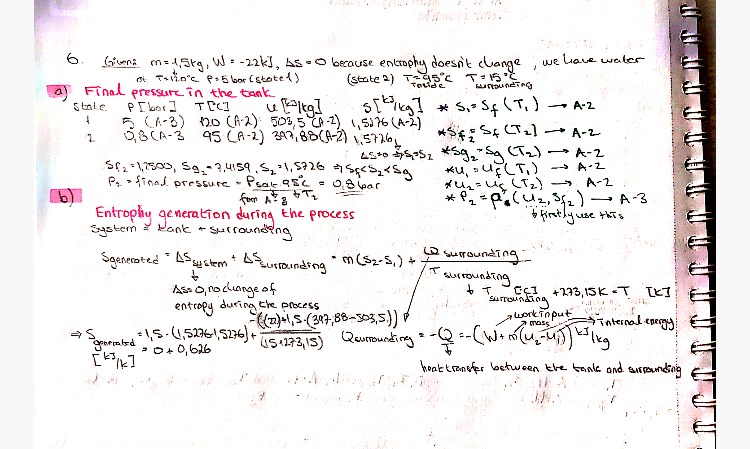 6. Given: m=1,5kg, W=-22kJ, ΔS=0 because entrophy doesn't change, we have water
at T=120°C P=5 bar (state 1) (state 2) T inside=95°C T surrounding=15°C
a) Final pressure in the tank
state P[bar] T[C] u[kJ/kg] S[kJ/kg] * S₁=Sf(T₁) → A-2
1 5 (A-3) 120 (A-2) 503,5 (A-2) 1,5276 (A-2)
2 0,8 (A-3 95 (A-2) 397,88 (A-2) 1,5726 * Sf₂=Sf(T₂) → A-2
ΔS=0 ⇒ S₁=S₂ * Sg₂=Sg(T₂) → A-2
Sf₂=1,2500, Sg₂=7,4159, S₂=1,5726 ⇒ Sf<S₂<Sg * u₁=uf(T₁) → A-2
P₂=final pressure = Psat 95°C = 0,8 bar * u₂=uf(T₂) → A-2
from A-3 T₂ * P₂=P(u₂,Sf₂) → A-3
firstly use this
b) Entrophy generation during the process
System = tank + surrounding
Sgenerated = ΔSsystem + ΔSsurrounding = m(S₂-S₁) + Q surrounding / T surrounding
ΔS=0, no change of entropy during the process
T surrounding [C] +273,15K = T [K]
⇒ Sgenerated = 1,5·(1,5276-1,5276) + -((-22)+1,5·(397,88-503,5)) / (15+273,15)
[kJ/K] = 0+0,626
Qsurrounding = -Q = -(W+m(u₂-u₁)) kJ/kg
work input mass internal energy
heat transfer between the tank and surrounding